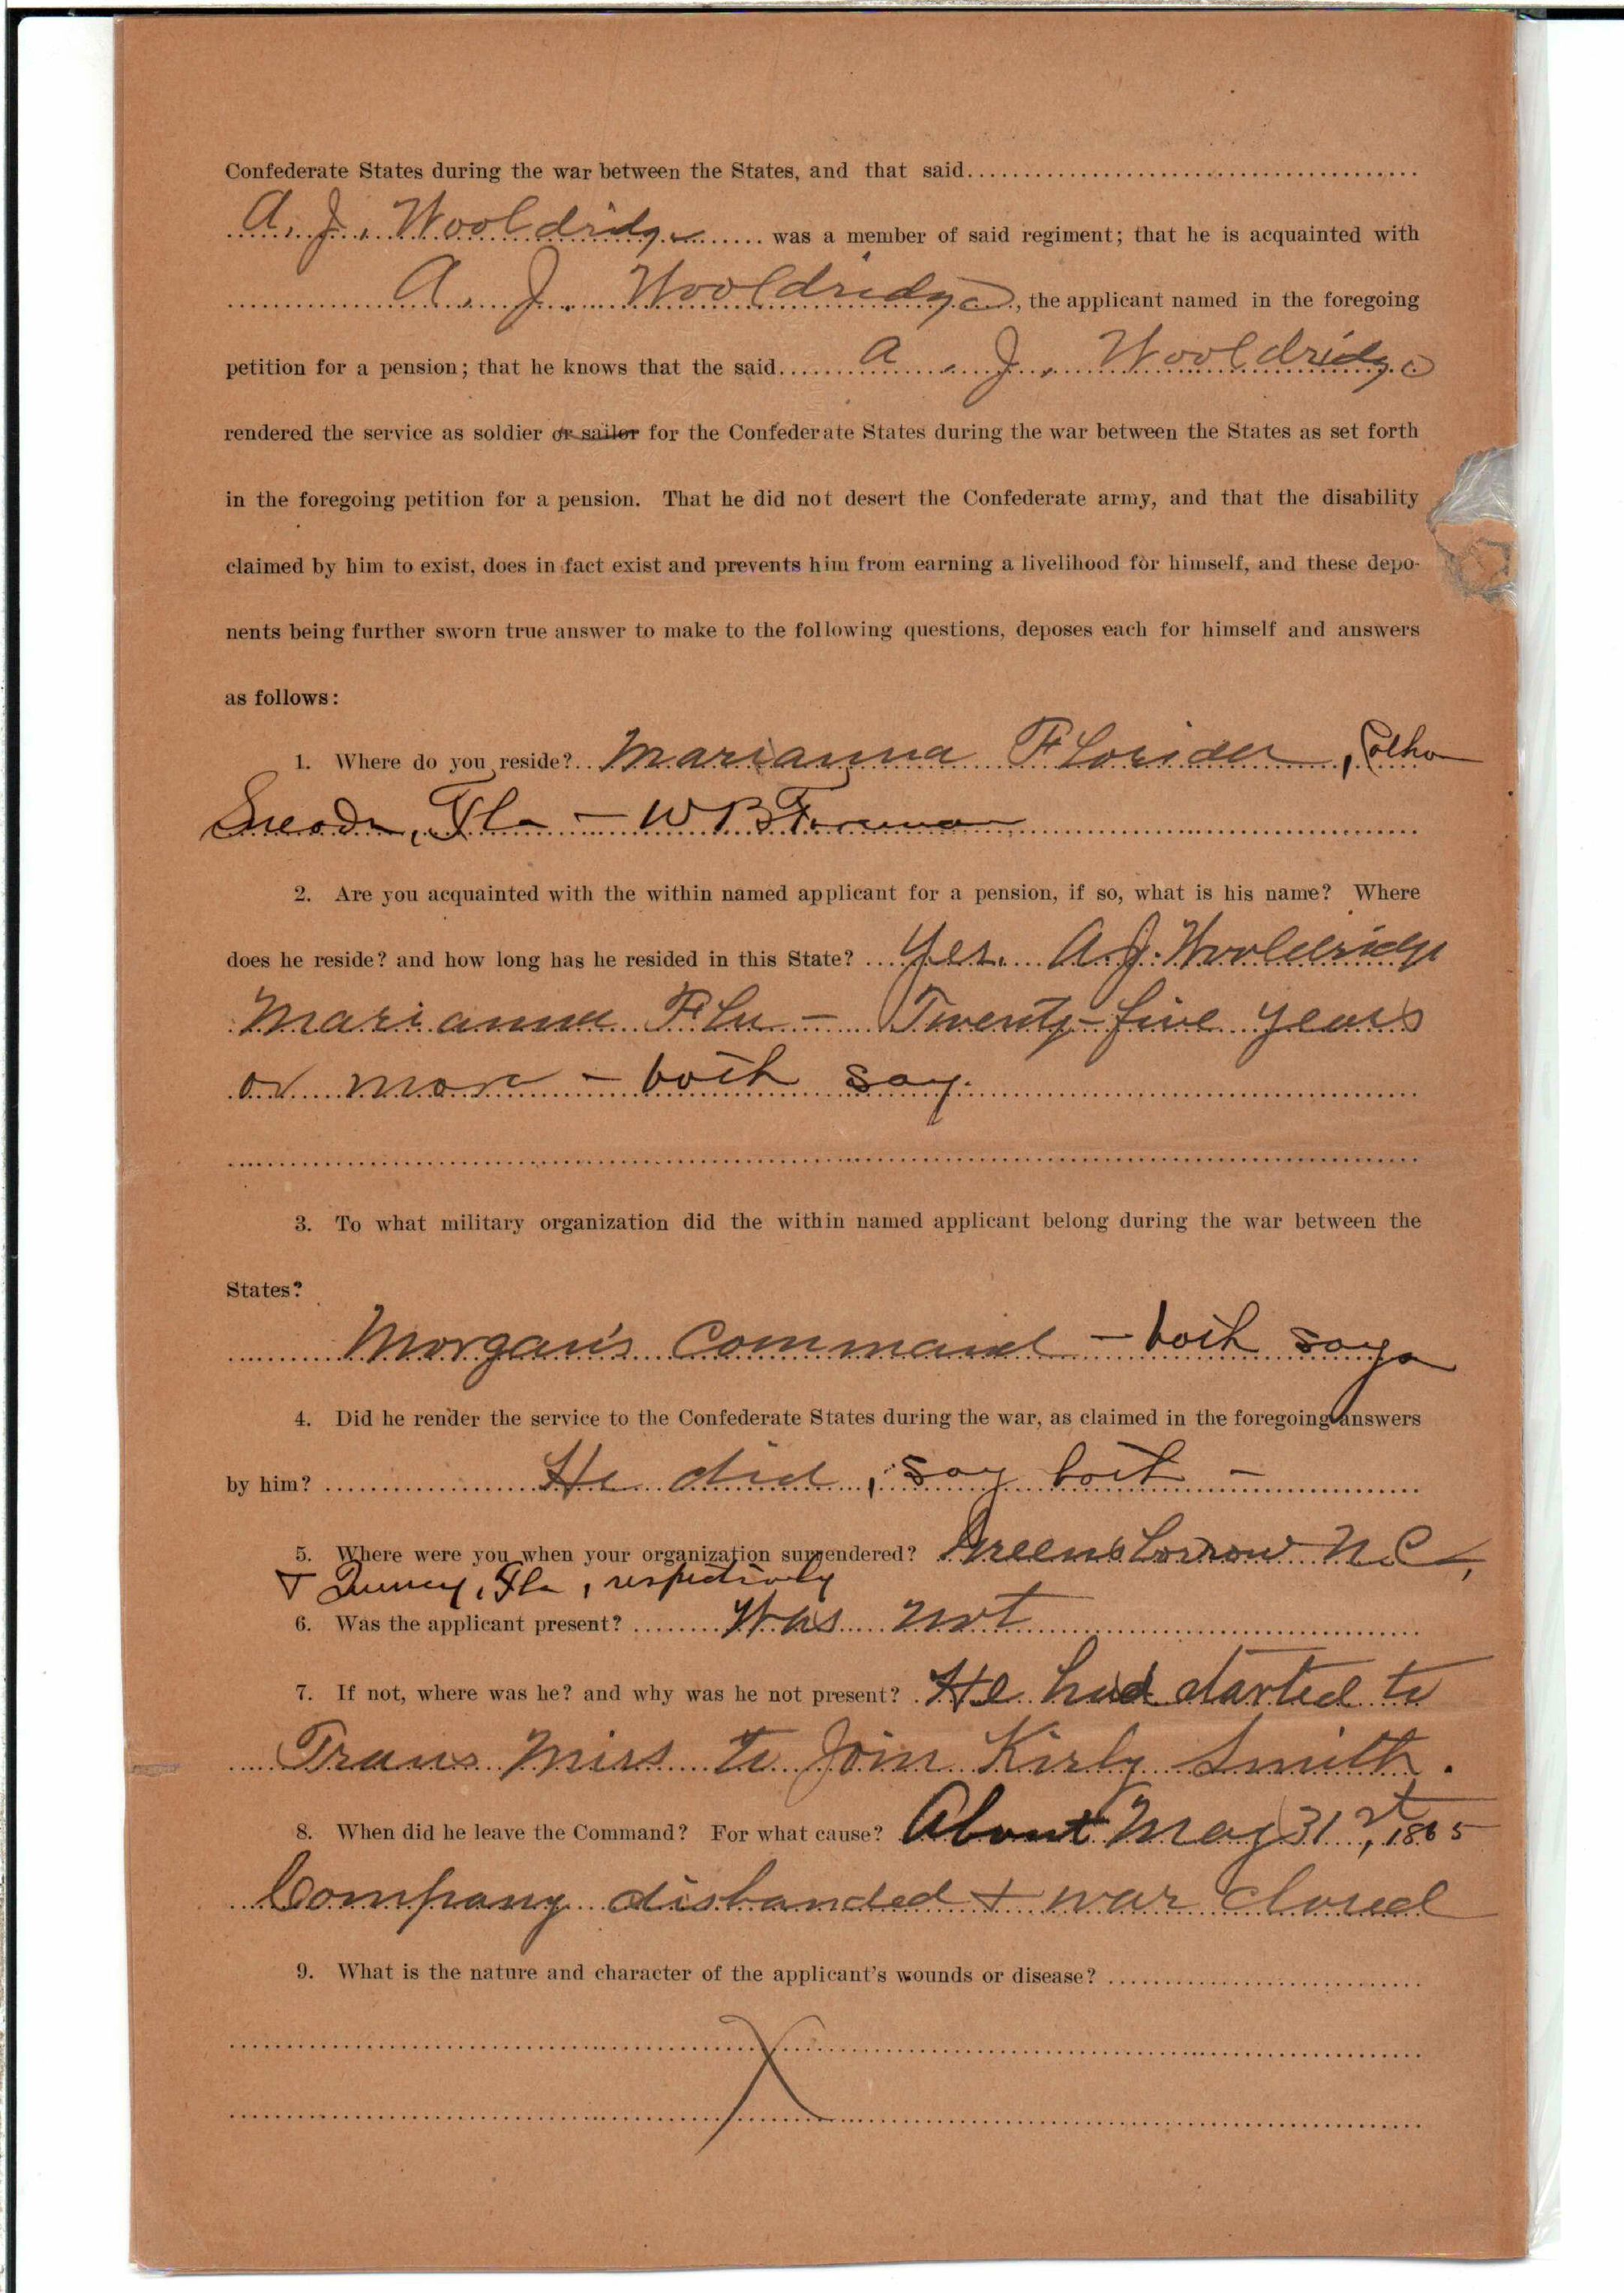 Confederate States during the war between the States, and that said
A. J. Wooldridge was a member of said regiment; that he is acquainted with
A. J. Wooldridge, the applicant named in the foregoing
petition for a pension; that he knows that the said A. J. Wooldridge
rendered the service as soldier or sailor for the Confederate States during the war between the States as set forth
in the foregoing petition for a pension. That he did not desert the Confederate army, and that the disability
claimed by him to exist, does in fact exist and prevents him from earning a livelihood for himself, and these depo-
nents being further sworn true answer to make to the following questions, deposes each for himself and answers
as follows:
1. Where do you reside? Marianna Florida,
Sneads, Fla - W B
2. Are you acquainted with the within named applicant for a pension, if so, what is his name? Where
does he reside? and how long has he resided in this State? Yes. A. J. Wooldridge
Marianna Fla - Twenty-five years
or more - both say.
3. To what military organization did the within named applicant belong during the war between the
States?
Morgan's Command - both say
4. Did he render the service to the Confederate States during the war, as claimed in the foregoing answers
by him? He did, say both -
5. Where were you when your organization surrendered? Greensborrow N.C.,
+ Quincy, Fla, respectively
6. Was the applicant present? Was not
7. If not, where was he? and why was he not present? He had started to
Trans Miss to Join Kirby Smith.
8. When did he leave the Command? For what cause? About May 31st, 1865
Company disbanded + war closed
9. What is the nature and character of the applicant's wounds or disease?
X